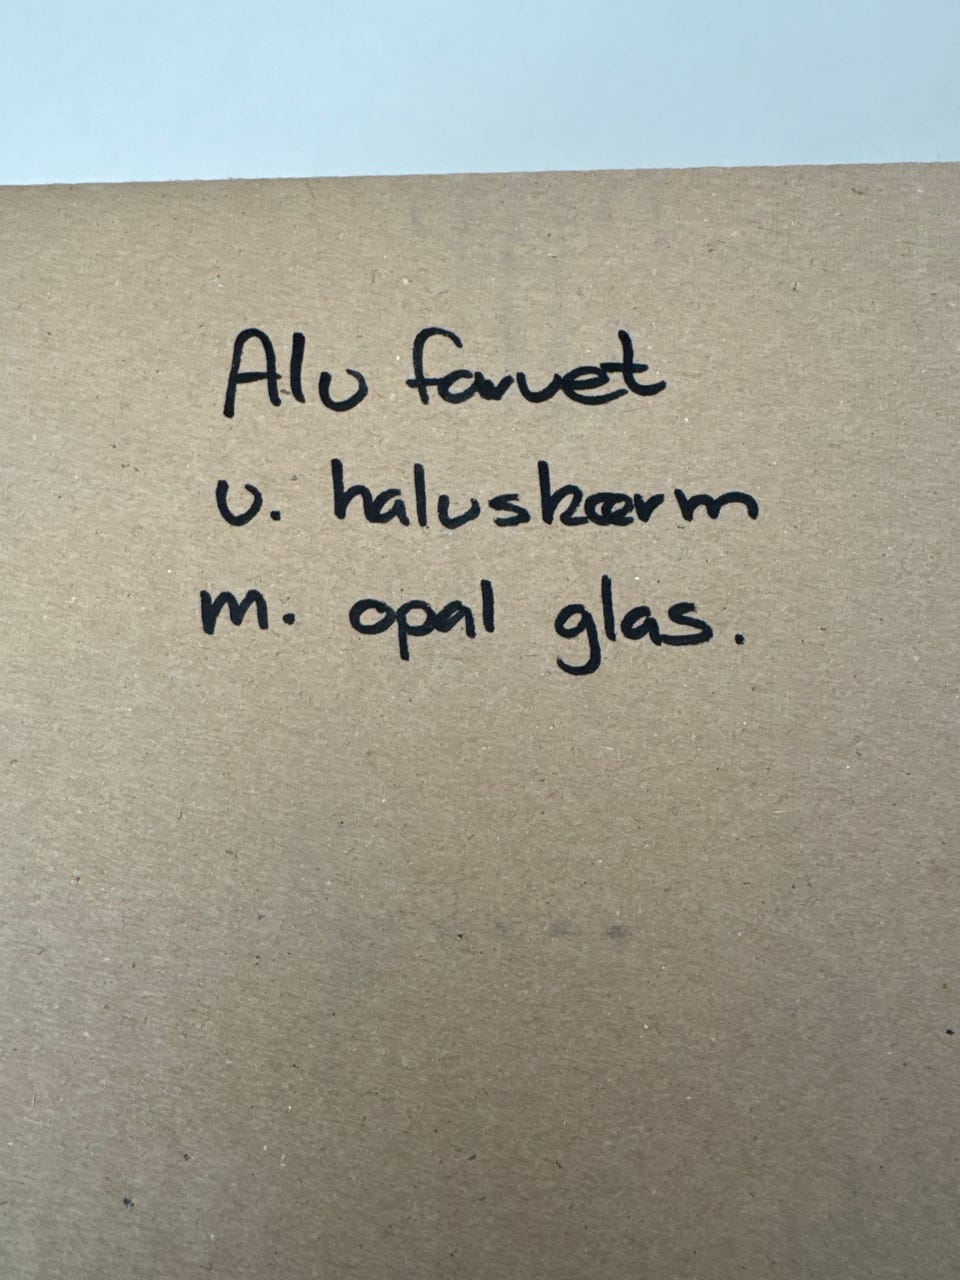 Alu farvet
u. halvskærm
m. opal glas.